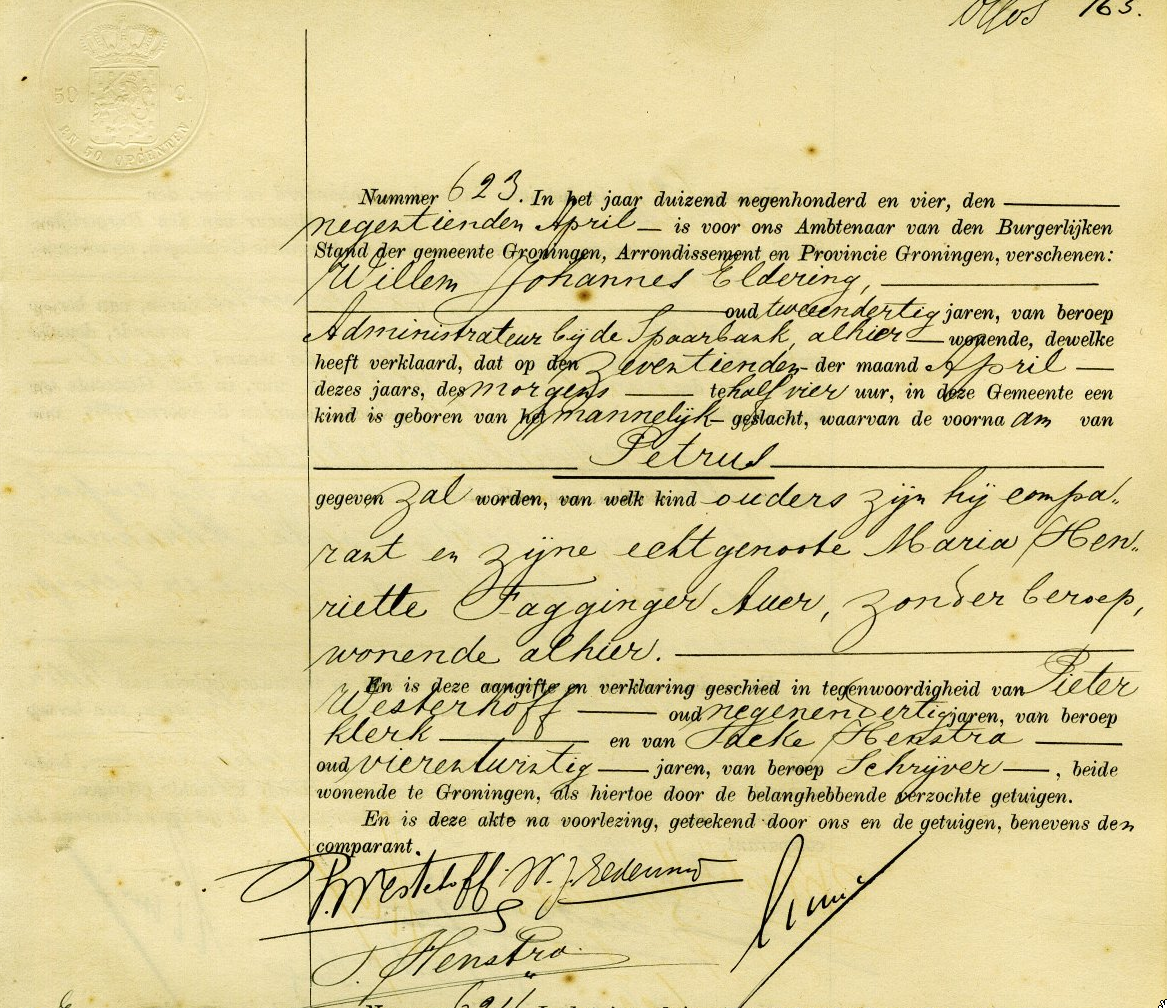 163.
50 C.
EN 50 OPCENTEN.
Nummer 623. In het jaar duizend negenhonderd en vier, den
negentienden April is voor ons Ambtenaar van den Burgerlijken
Stand der gemeente Groningen, Arrondissement en Provincie Groningen, verschenen:
Willem Johannes Eldering,
oud tweeendertig jaren, van beroep
Administrateur bij de Spaarbank, alhier wonende, dewelke
heeft verklaard, dat op den zeventienden der maand April
dezes jaars, des morgens te half vier uur, in deze Gemeente een
kind is geboren van het mannelijk geslacht, waarvan de voorna am van
Petrus
gegeven zal worden, van welk kind ouders zijn hij compa„
rant en zijne echtgenoote Maria Hen„
riette Fagginger Auer, zonder beroep,
wonende alhier.
En is deze aangifte en verklaring geschied in tegenwoordigheid van Pieter
Westerhoff oud negenendertig jaren, van beroep
klerk en van Henstra
oud vierentwintig jaren, van beroep Schrijver, beide
wonende te Groningen, als hiertoe door de belanghebbende verzochte getuigen.
En is deze akte na voorlezing, geteekend door ons en de getuigen, benevens den
comparant.
P. Westerhoff W. J. Eldering
Henstra
624